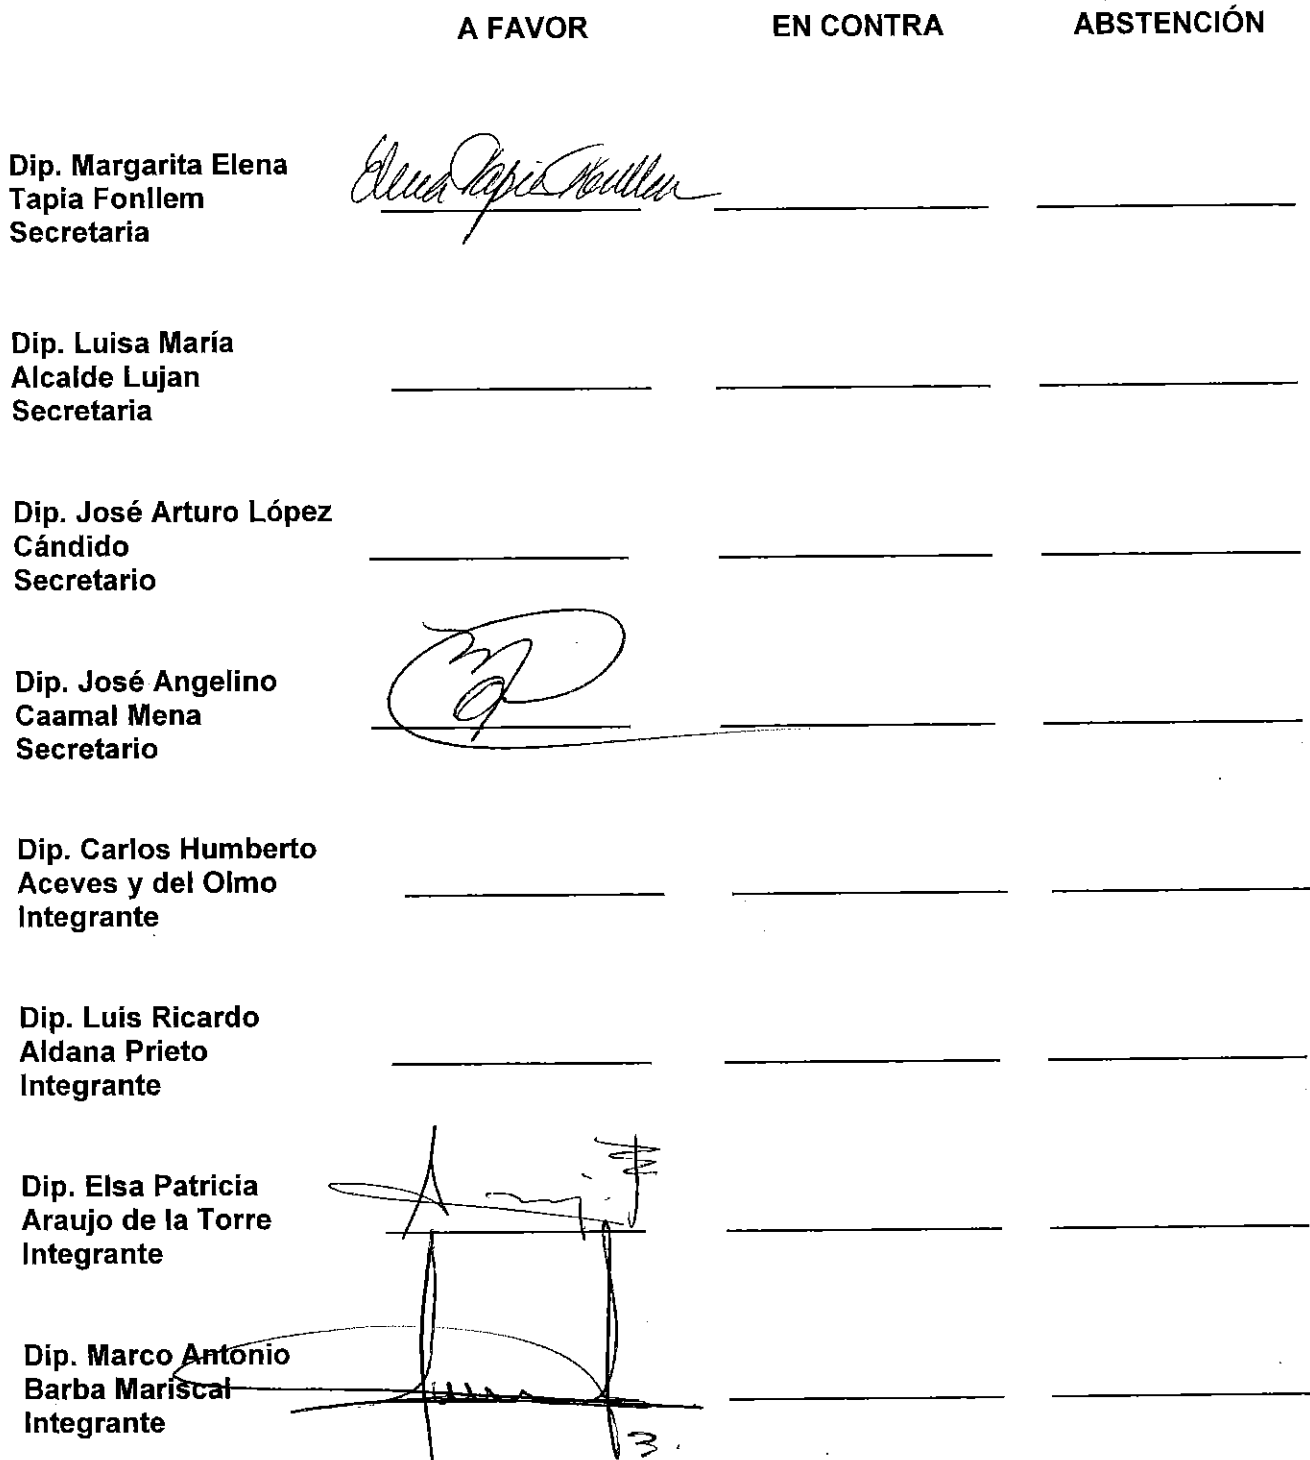 A FAVOR EN CONTRA ABSTENCIÓN
Dip. Margarita Elena
Tapia Fonllem
Secretaria
Elena Tapia Fonllem
Dip. Luisa María
Alcalde Lujan
Secretaria
Dip. José Arturo López
Cándido
Secretario
Dip. José Angelino
Caamal Mena
Secretario
Dip. Carlos Humberto
Aceves y del Olmo
Integrante
Dip. Luis Ricardo
Aldana Prieto
Integrante
Dip. Elsa Patricia
Araujo de la Torre
Integrante
Dip. Marco Antonio
Barba Mariscal
Integrante